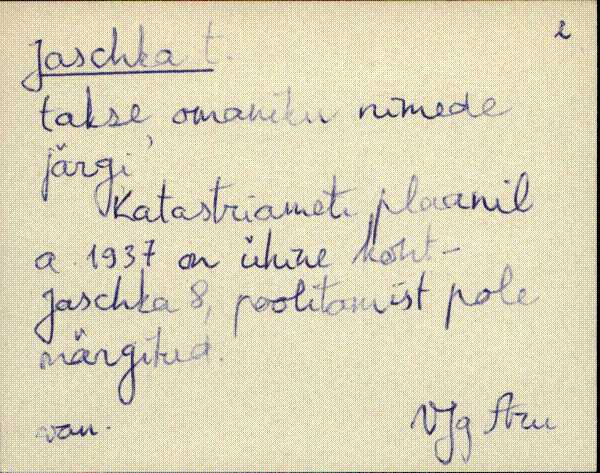 2
Jaschka t.
takse, omaniku nimede
järgi
Katastriameti plaanil
a. 1937 on ühine koht -
Jaschka 8, poolitamist pole
märgitud.
van.
VJg Aru